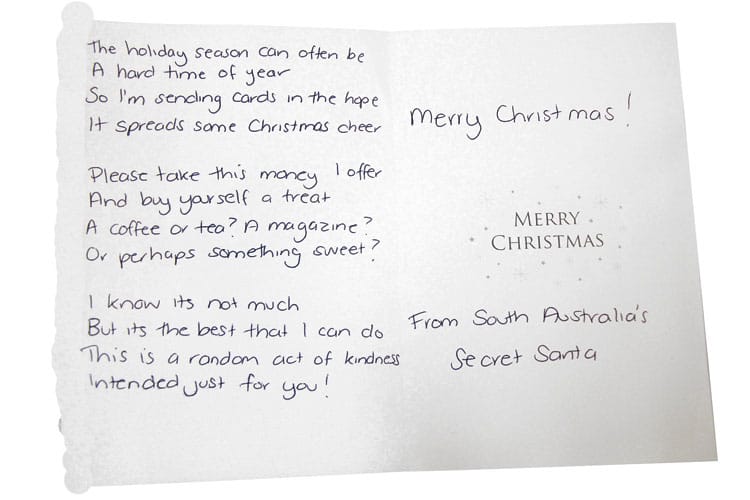 The holiday season can often be
A hard time of year
So I'm sending cards in the hope
It spreads some Christmas cheer
Please take this money I offer
And buy yourself a treat
A coffee or tea? A magazine?
Or perhaps something sweet?
I know its not much
But its the best that I can do
This is a random act of kindness
Intended just for you!
Merry Christmas!
MERRY
CHRISTMAS
From South Australia's
Secret Santa